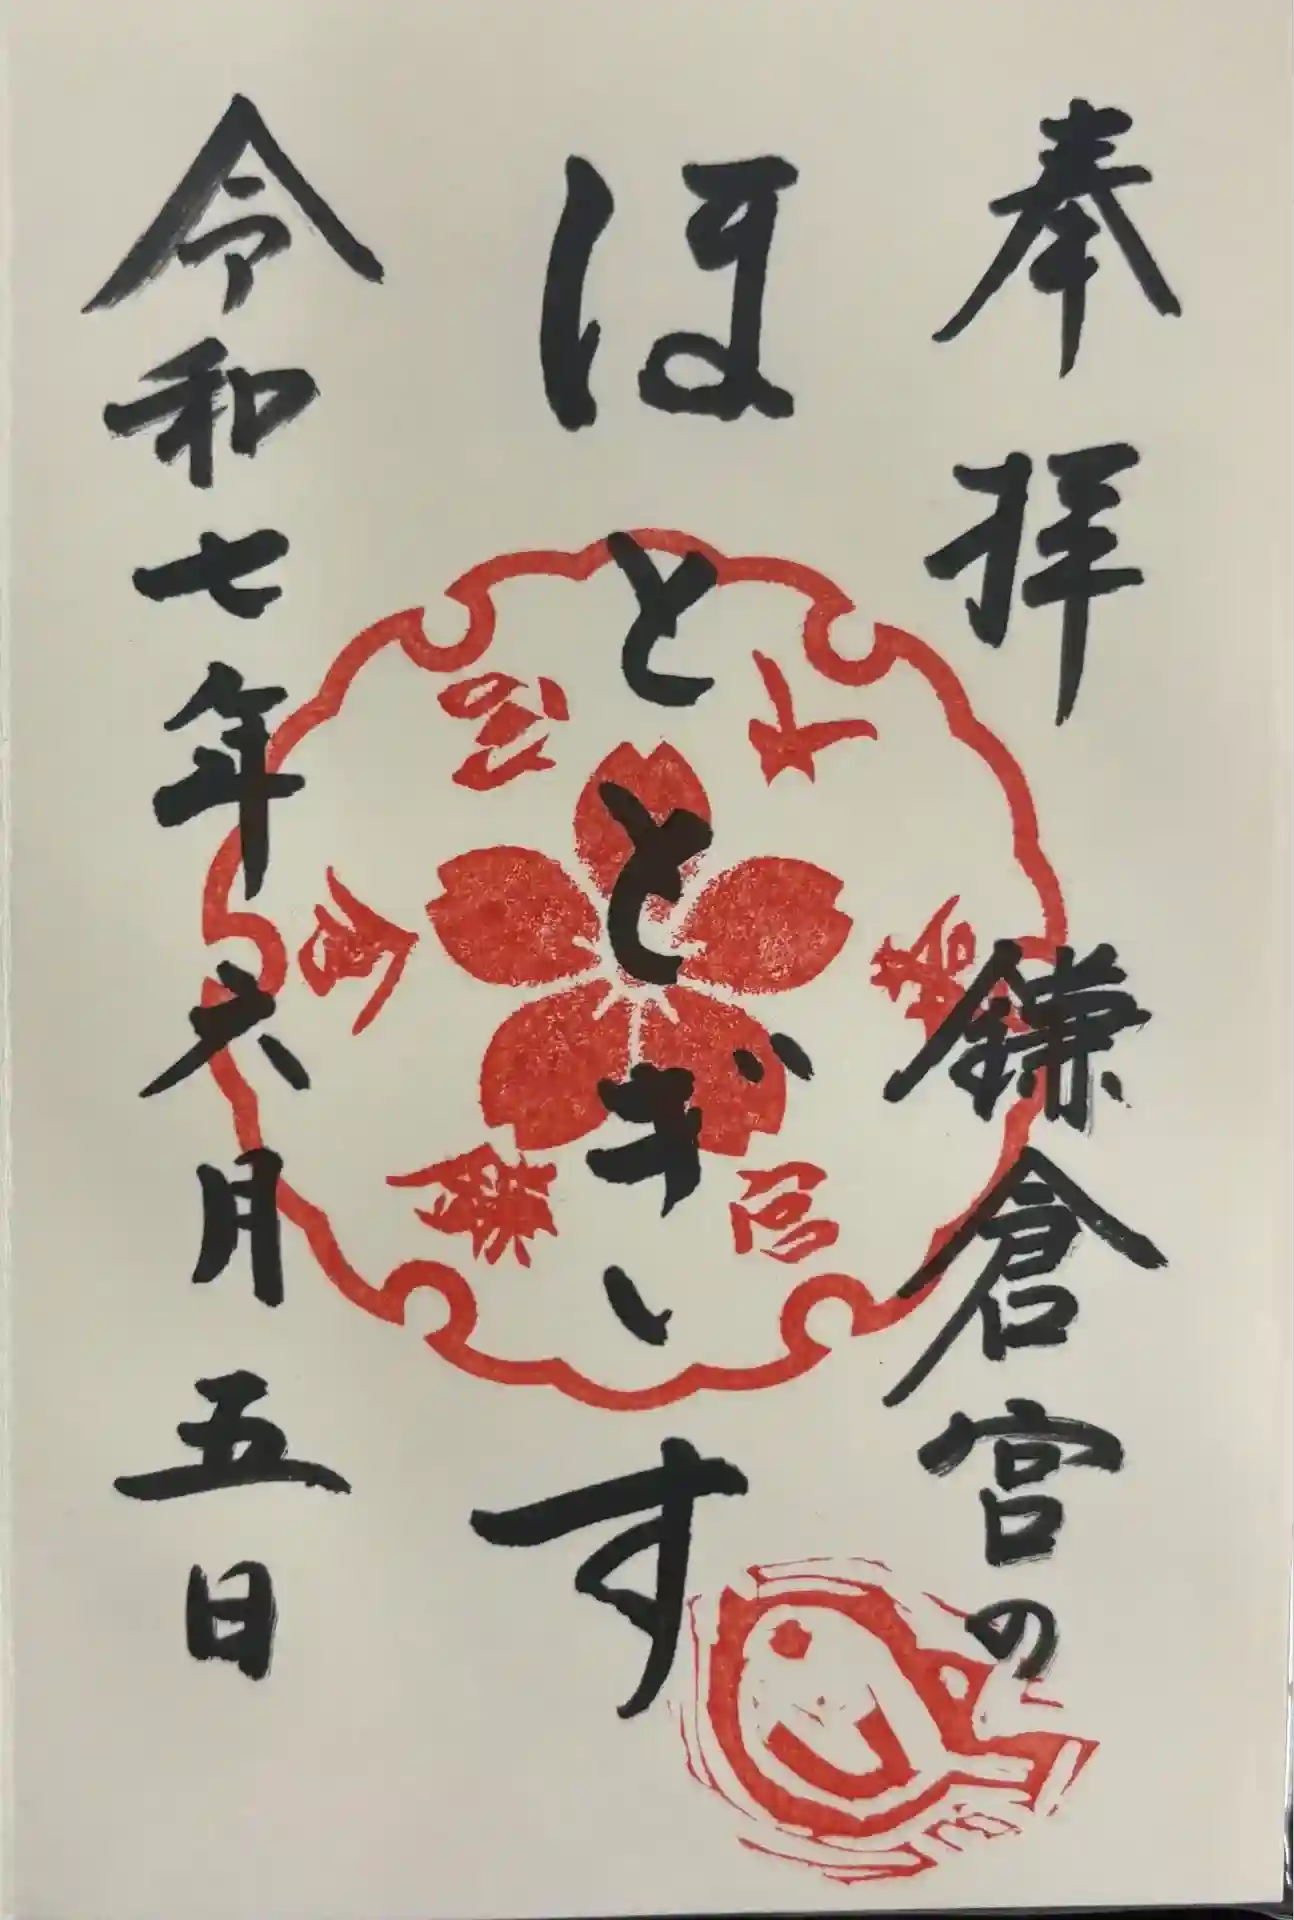 奉拝　鎌倉宮の
ほととぎす
令和七年六月五日
大塔宮鎌倉宮